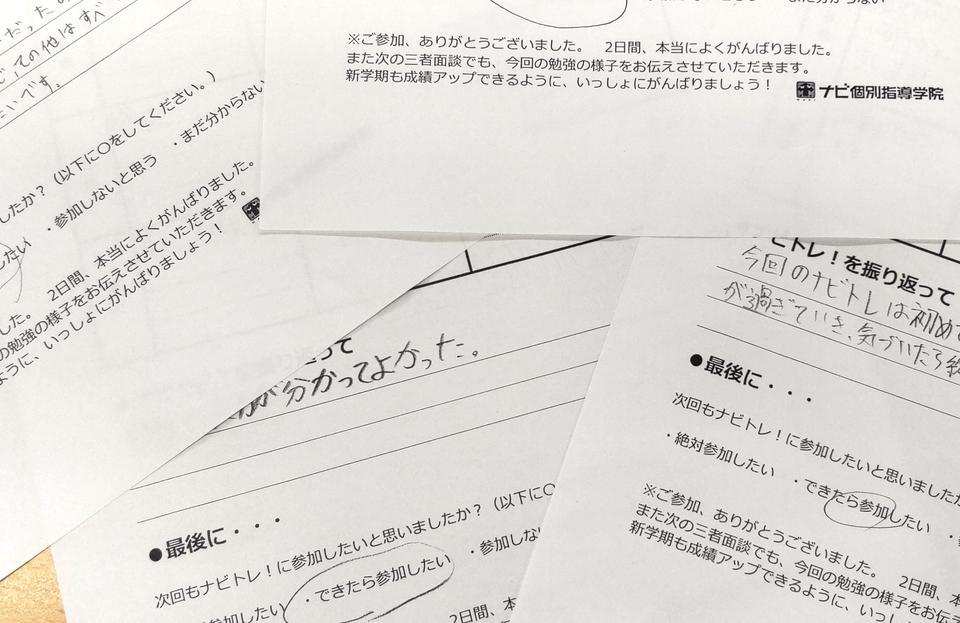 ・まだ分からない
※ご参加、ありがとうございました。　2日間、本当によくがんばりました。
また次の三者面談でも、今回の勉強の様子をお伝えさせていただきます。
新学期も成績アップできるように、いっしょにがんばりましょう！
ナビ個別指導学院
の他はすべ
いです。
したか？（以下に〇をしてください。）
・参加しないと思う　・まだ分からない
した。　2日間、本当によくがんばりました。
の勉強の様子をお伝えさせていただきます。
ように、いっしょにがんばりましょう！
って
が分かってよかった。
●最後に・・・
次回もナビトレ！に参加したいと思いましたか？（以下に〇
参加したい　・できたら参加したい　・参加しな
2日間、本
ビトレ！を振り返って
今回のナビトレは初めて
が過ぎていき、気づいたら終
●最後に・・・
次回もナビトレ！に参加したいと思いましたか
・絶対参加したい　・できたら参加したい　・
※ご参加、ありがとうございました。　2日間、本
また次の三者面談でも、今回の勉強の様子をお伝え
新学期も成績アップできるように、いっしょ